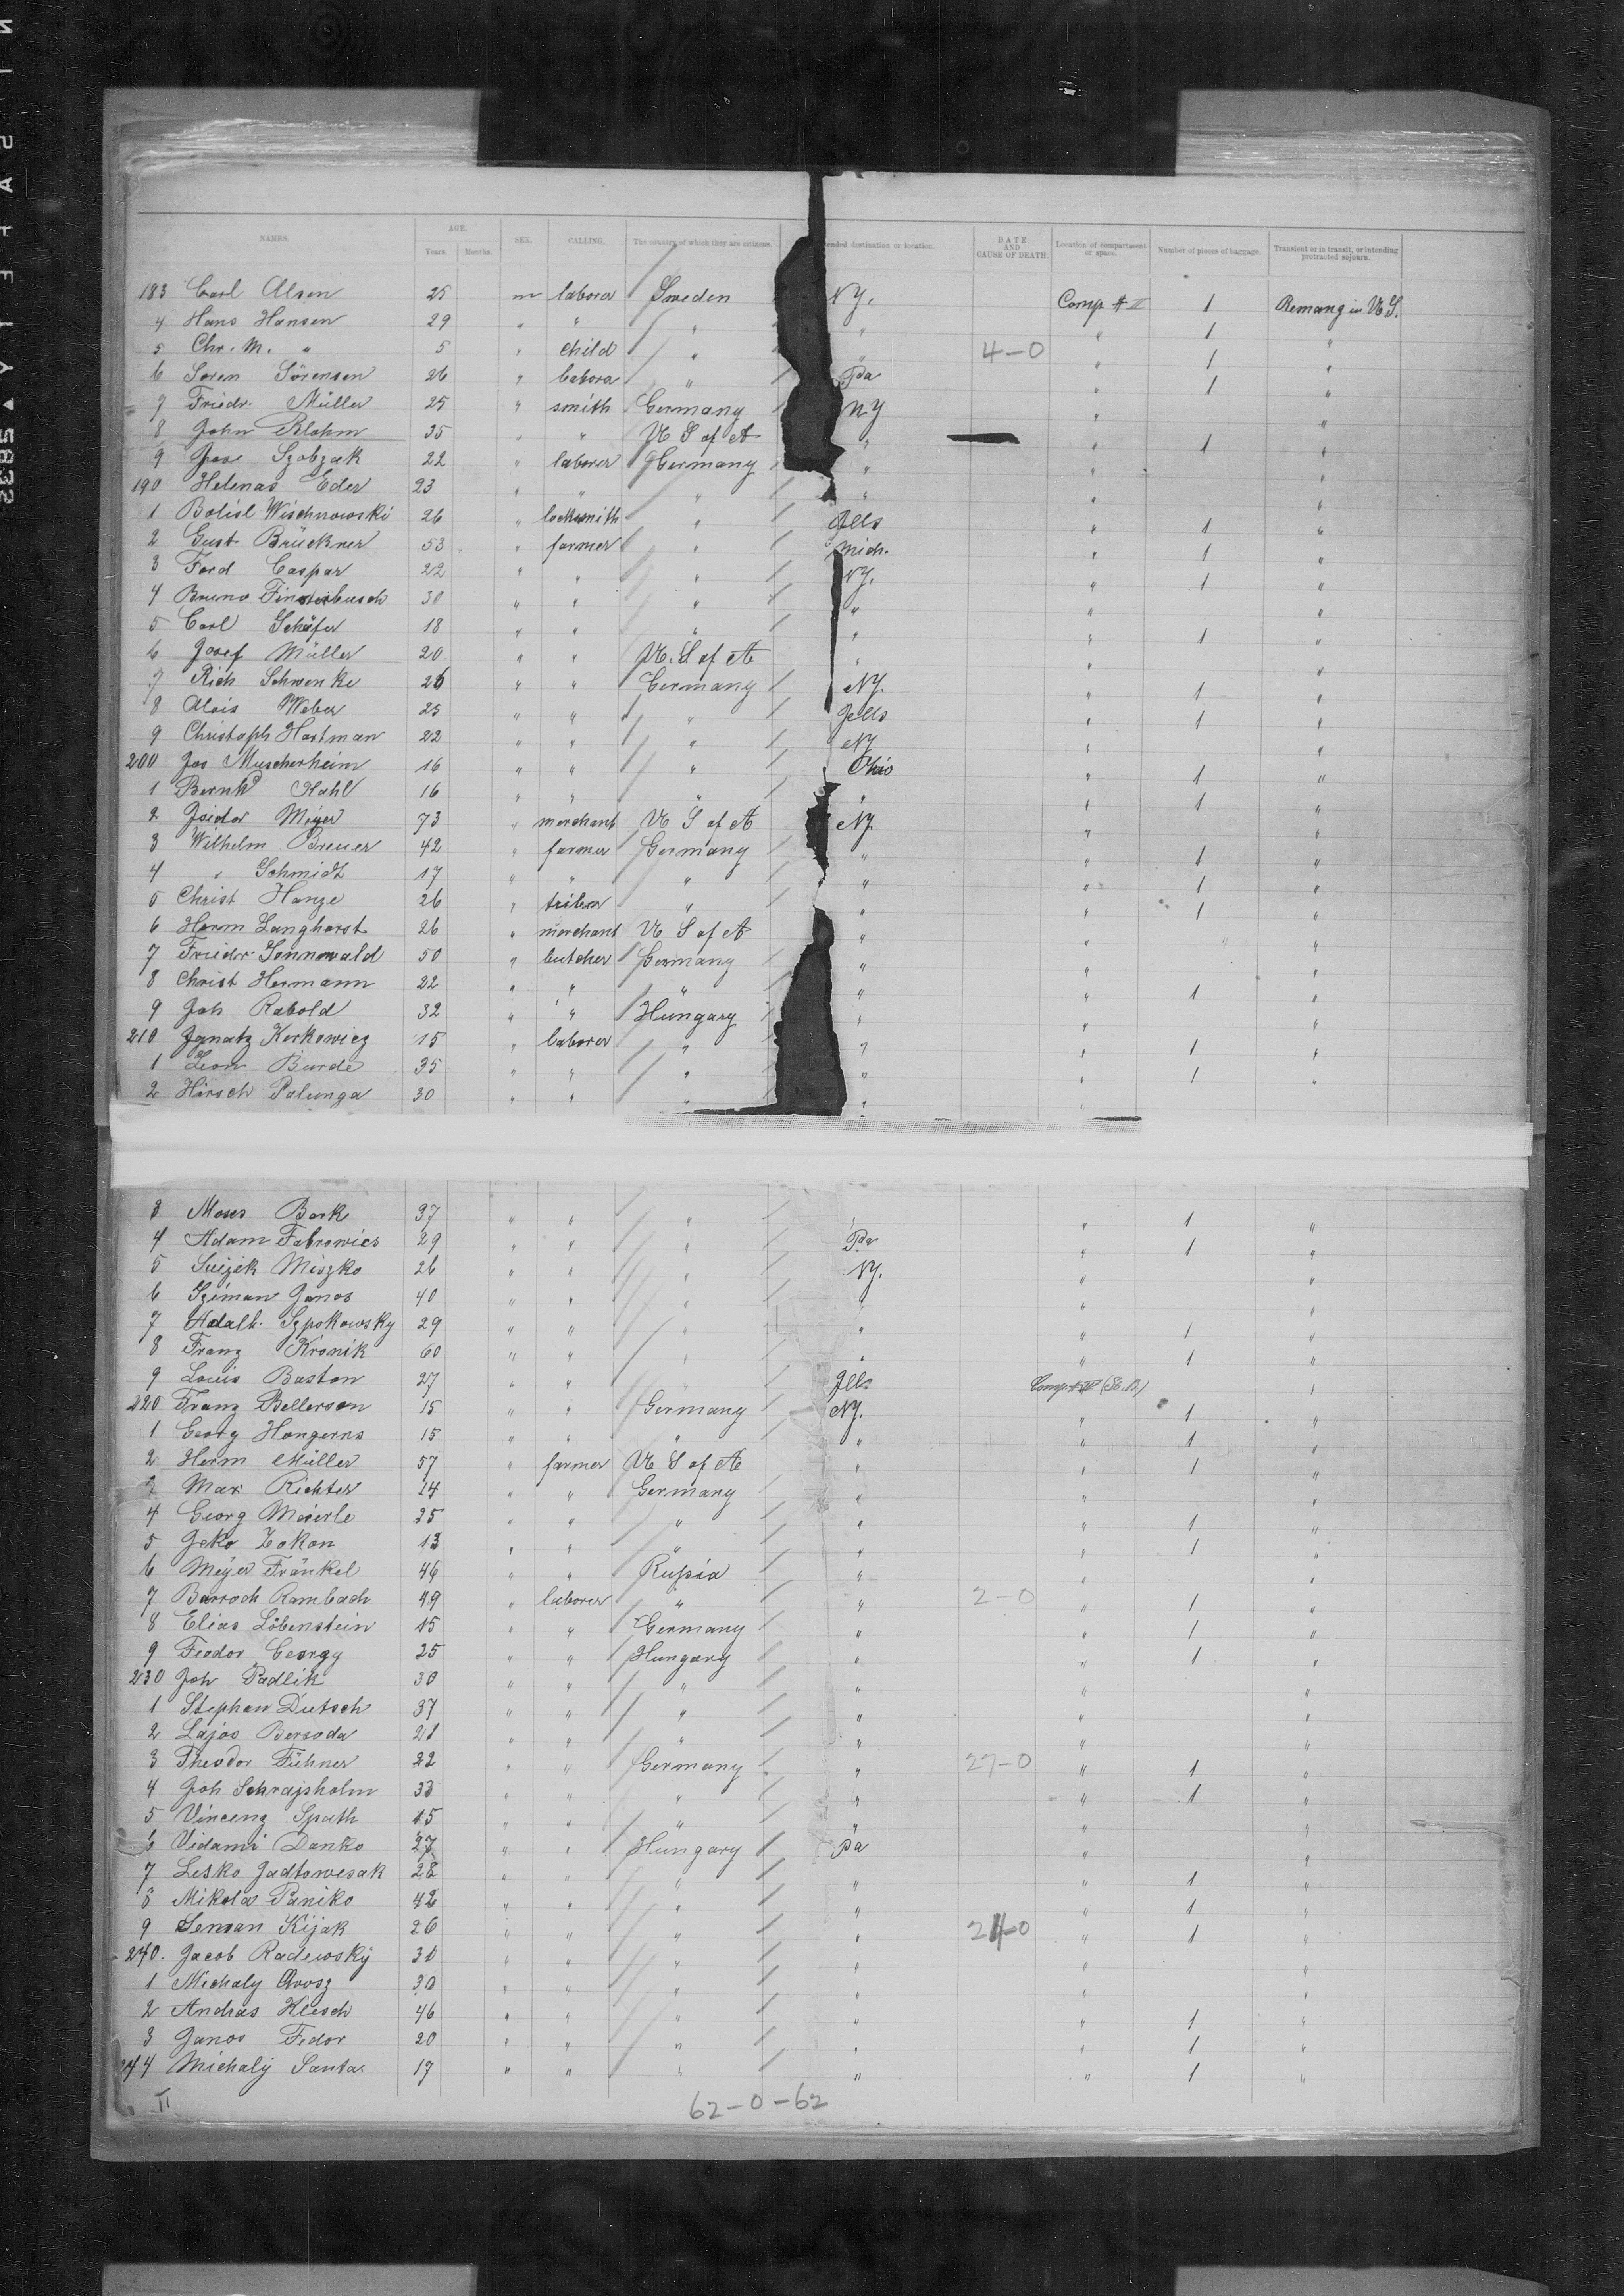 NAMES. AGE. Years. Months. SEX. CALLING. The country of which they are citizens. ended destination or location. DATE AND CAUSE OF DEATH. Location of compartment or space. Number of pieces of baggage. Transient or in transit, or intending protracted sojourn.
183 Carl Alsen 25 m laborer Sweden NY. Comp # II 1 Remang in U.S.
4 Hans Hansen 29 " " " " " 1 "
5 Chr. M. " 5 " child " " 4-0 " 1 "
6 Soren Sörensen 26 " labora " Pa " 1 "
7 Friedr. Müller 25 " smith Germany NY " "
8 John Blohm 35 " " U S of A " " 1 "
9 Jose Szobzak 22 " laborer Germany " " "
190 Helenas Eder 23 " " " " " "
1 Bolisl Wischnowski 26 " locksmith " Ills " 1 "
2 Gust Brückner 53 " farmer " Mich. " 1 "
3 Ferd Caspar 22 " " " NY. " 1 "
4 Bruno Finsterbusch 30 " " " " " "
5 Carl Schäfer 18 " " " " " 1 "
6 Josef Müller 20 " " U. S of A " " "
7 Rich Schwenke 26 " " Germany NY. " 1 "
8 Alois Weber 25 " " " Ills " 1 "
9 Christoph Hartman 22 " " " NY " "
200 Jos Muscherheim 16 " " " Ohio " 1 "
1 Bernhd Hahl 16 " " " " " 1 "
2 Isidor Meyer 73 " merchant U S of A NY. " "
3 Wilhelm Breuer 42 " farmer Germany " " 1 "
4 " Schmidt 17 " " " " " 1 "
5 Christ Hanze 26 " " " " 1 "
6 Herm Langhorst 26 " merchant U S of A " " " "
7 Friedr. Sonnwald 50 " butcher Germany " " "
8 Christ Hermann 22 " " " " " 1 "
9 Joh Rabold 32 " " Hungary " " "
210 Ignatz Korkowicz 15 " laborer " " " 1 "
1 Leon Burde 35 " " " " " 1 "
2 Hirsch Palunga 30 " " " " "
3 Moses Bark 37 " " " " 1 "
4 Adam Fabrowics 29 " " " Pa " 1 "
5 Miszko 26 " " " NY. " "
6 Sziman Janos 40 " " " " " "
7 Adalb. Szpokowsky 29 " " " " " 1 "
8 Franz Kronik 60 " " " " " 1 "
9 Louis Baston 27 " " Ills "
220 Franz Bellerson 15 " " Germany NY. " 1 "
1 Georg Hongerns 15 " " " " " 1 "
2 Herm Müller 57 " farmer U S of A " " 1 "
3 Max Richter 24 " " Germany " " "
4 Georg Meierle 25 " " " " " 1 "
5 Jeko Zokon 13 " " " " " 1 "
6 Meyer Fränkel 46 " " Russia " " "
7 Barroch Rambach 49 " laborer " " 2-0 " 1 "
8 Elias Löbenstein 15 " " Germany " " 1 "
9 Feodor Georgy 25 " " Hungary " " 1 "
230 Joh Padlik 30 " " " " " "
1 Stephan Dutsch 37 " " " " " "
2 Lajos Bersoda 21 " " " " " "
3 Theodor Führer 22 " " Germany " 27-0 " 1 "
4 Joh Schrajsholm 33 " " " " " 1 "
5 Vincenz Spath 15 " " " " " "
6 Vidami Danko 27 " " Hungary Pa " "
7 Lesko Jadtowesak 28 " " " " " 1 "
8 Mikola Paniko 42 " " " " " 1 "
9 Seman Kijak 26 " " " " 21-0 " 1 "
240. Jacob Radewsky 30 " " " " " "
1 Michaly Orosz 30 " " " " " "
2 Andras Klesch 46 " " " " " 1 "
3 Janos Fedor 20 " " " " " 1 "
244 Michaly Santa 17 " " " " " 1 "
II 62-0-62